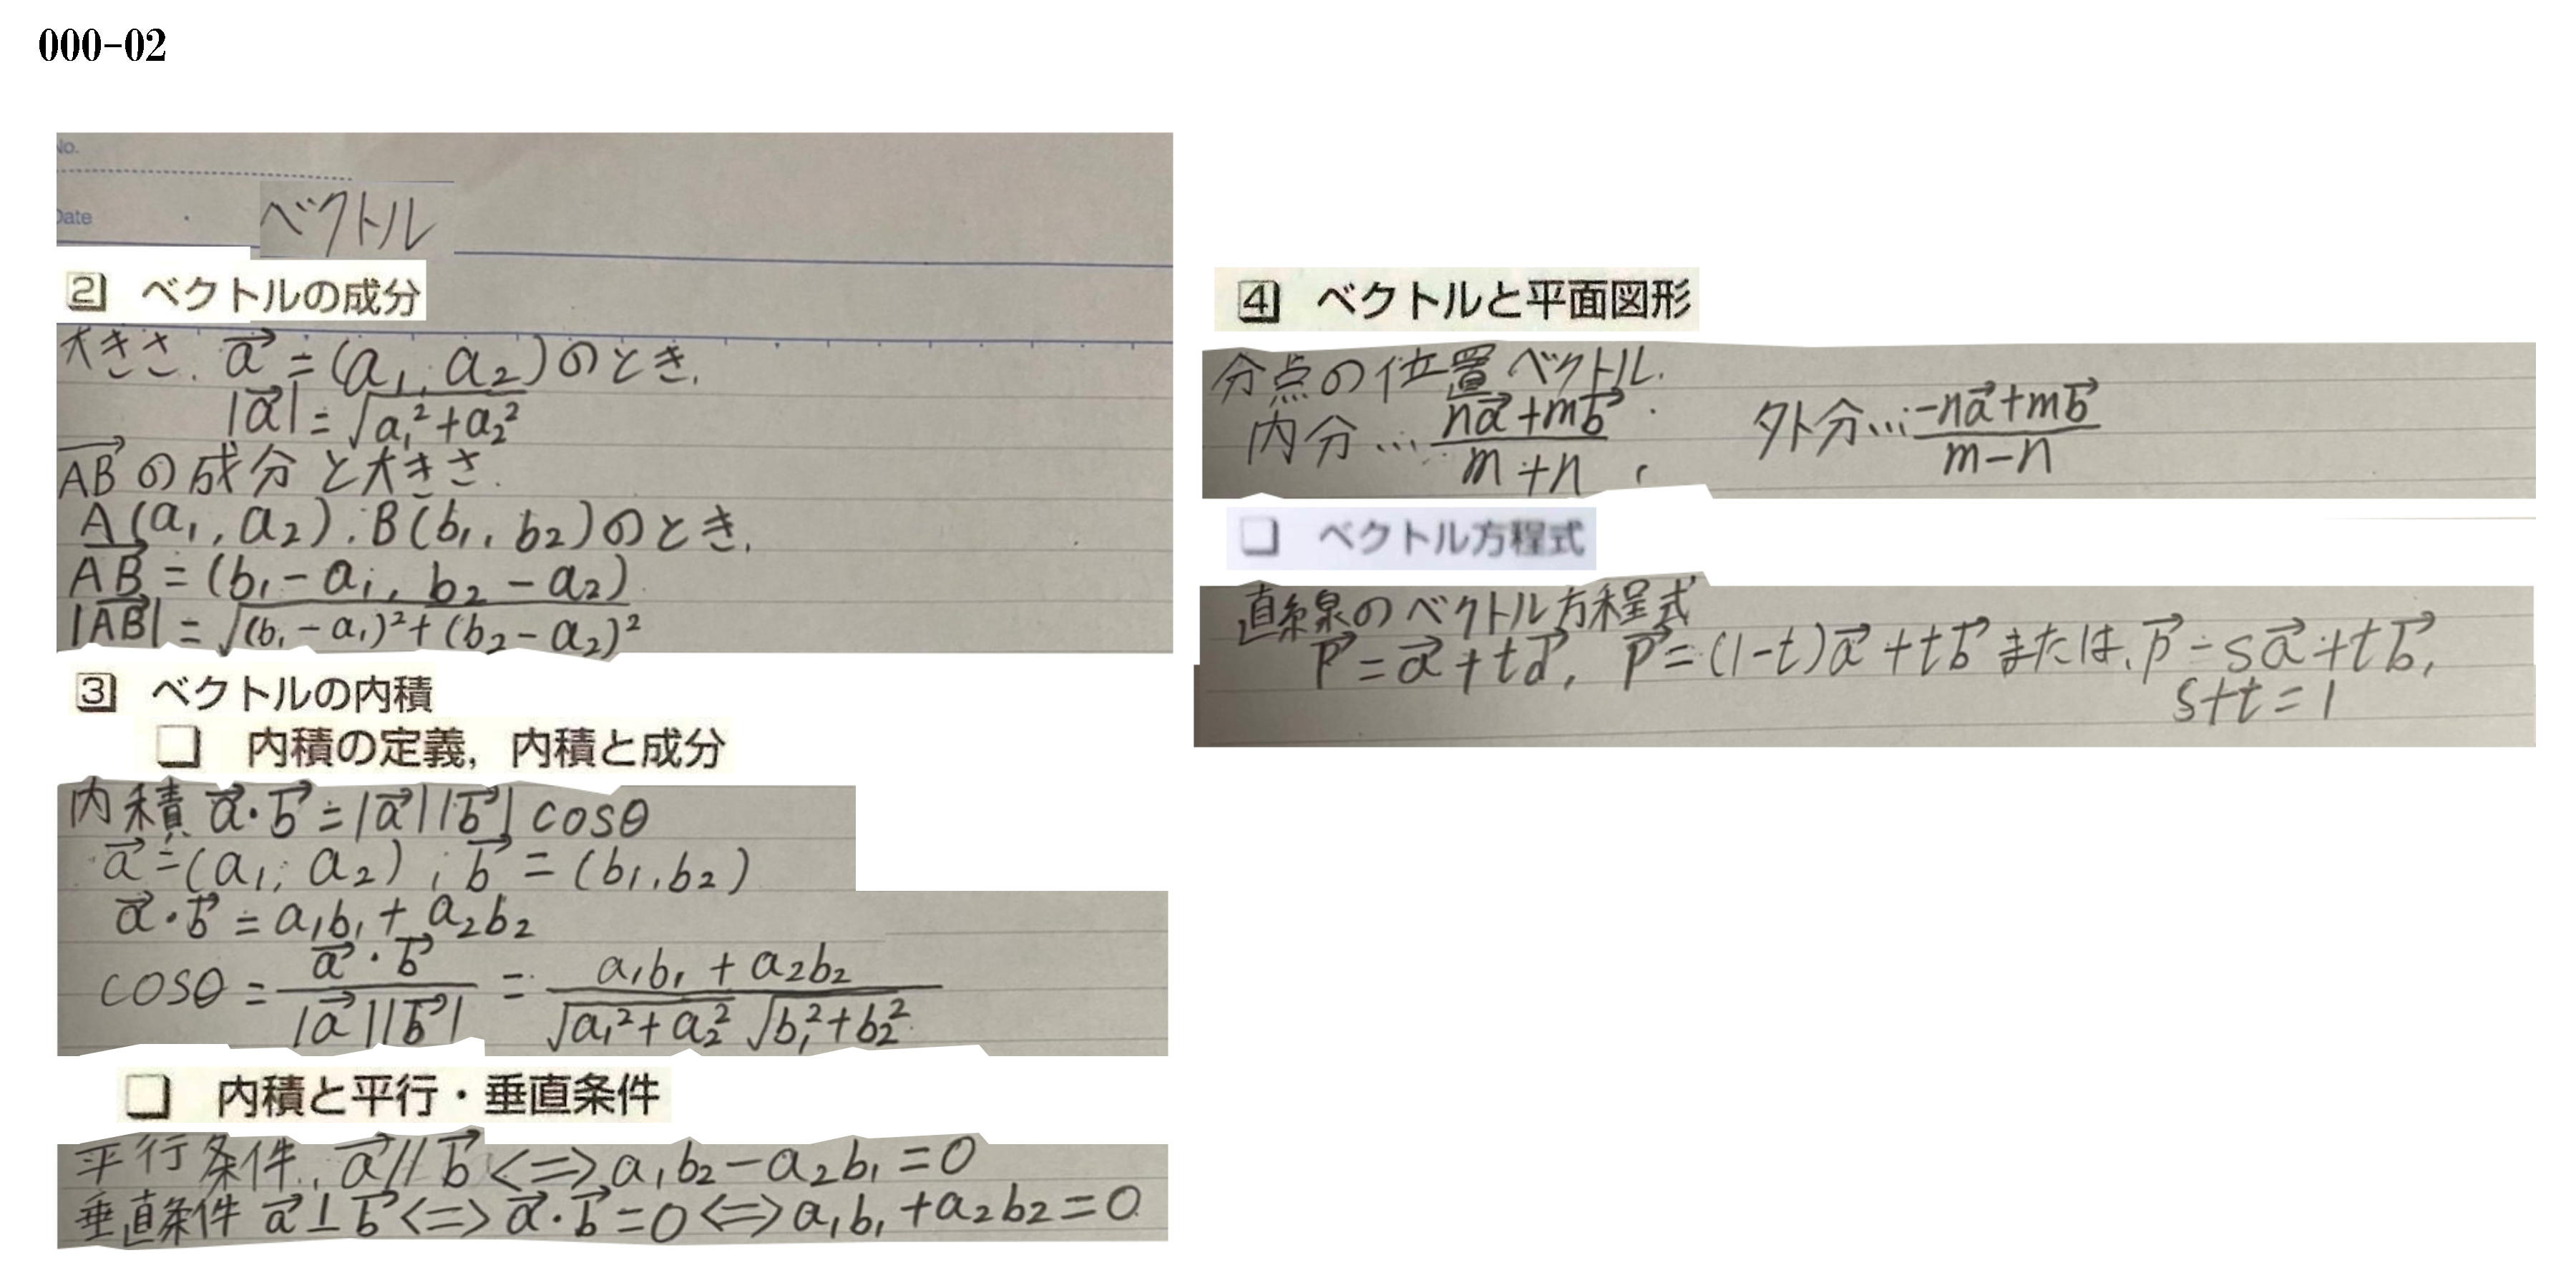 000-02
No.
Date
ベクトル
2 ベクトルの成分
大きさ. a⃗ = (a₁, a₂)のとき.
|a⃗| = √(a₁²+a₂²)
AB⃗の成分と大きさ.
A(a₁, a₂). B(b₁, b₂)のとき.
AB⃗ = (b₁-a₁, b₂-a₂)
|AB⃗| = √((b₁-a₁)²+(b₂-a₂)²)
3 ベクトルの内積
□ 内積の定義, 内積と成分
内積 a⃗・b⃗ = |a⃗||b⃗| cosθ
a⃗ = (a₁, a₂), b⃗ = (b₁, b₂)
a⃗・b⃗ = a₁b₁ + a₂b₂
cosθ = a⃗・b⃗/|a⃗||b⃗| = (a₁b₁+a₂b₂)/(√(a₁²+a₂²) √(b₁²+b₂²))
□ 内積と平行・垂直条件
平行条件. a⃗//b⃗ <=> a₁b₂-a₂b₁=0
垂直条件 a⃗⊥b⃗ <=> a⃗・b⃗=0 <=> a₁b₁+a₂b₂=0
4 ベクトルと平面図形
分点の位置ベクトル.
内分…(na⃗+mb⃗)/(m+n), 外分…(-na⃗+mb⃗)/(m-n)
□ ベクトル方程式
直線のベクトル方程式
p⃗ = a⃗+td⃗, p⃗ = (1-t)a⃗+tb⃗ または, p⃗=sa⃗+tb⃗,
s+t=1